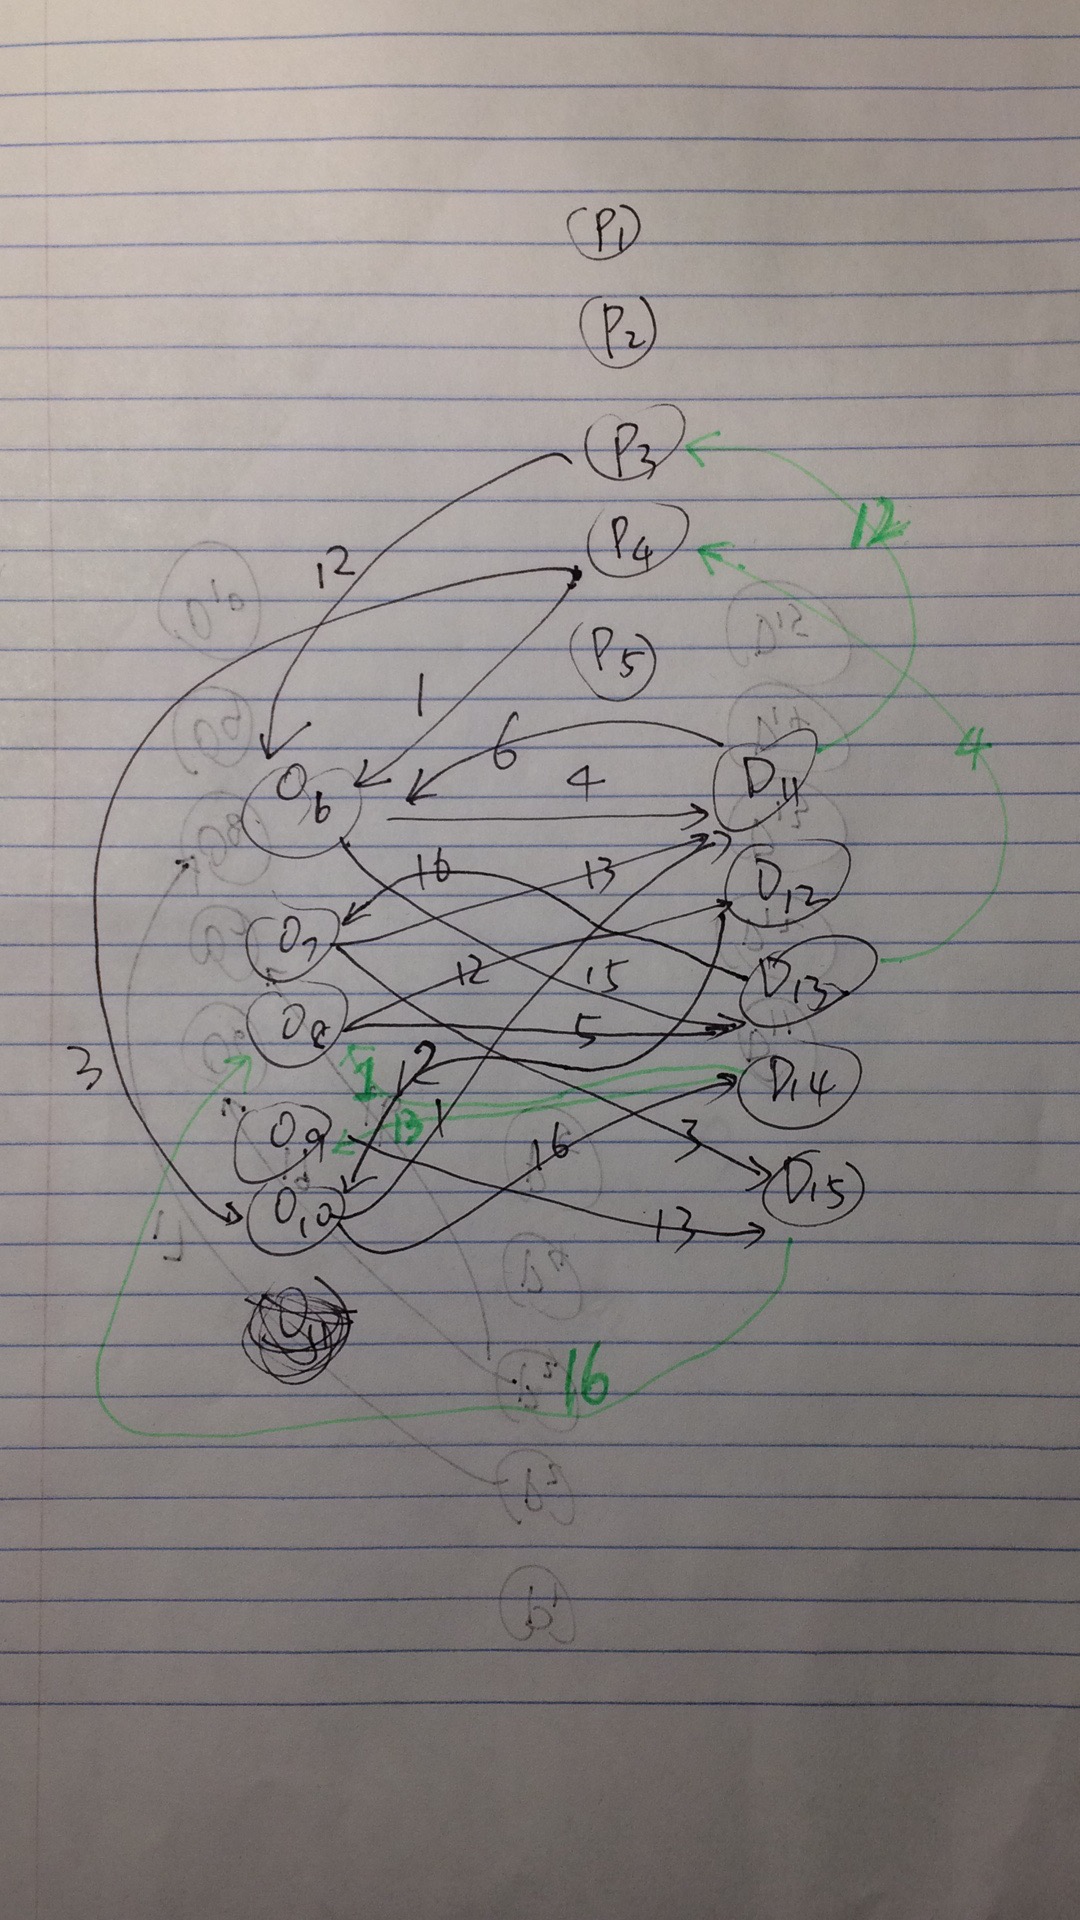 P1
P2
P3
P4
12
12
P5
1
6
4
4
O6
D11
16
13
D12
O7
12
15
D13
O8
5
3
1
12
D14
13
1
O9
16
3
D15
O10
13
16